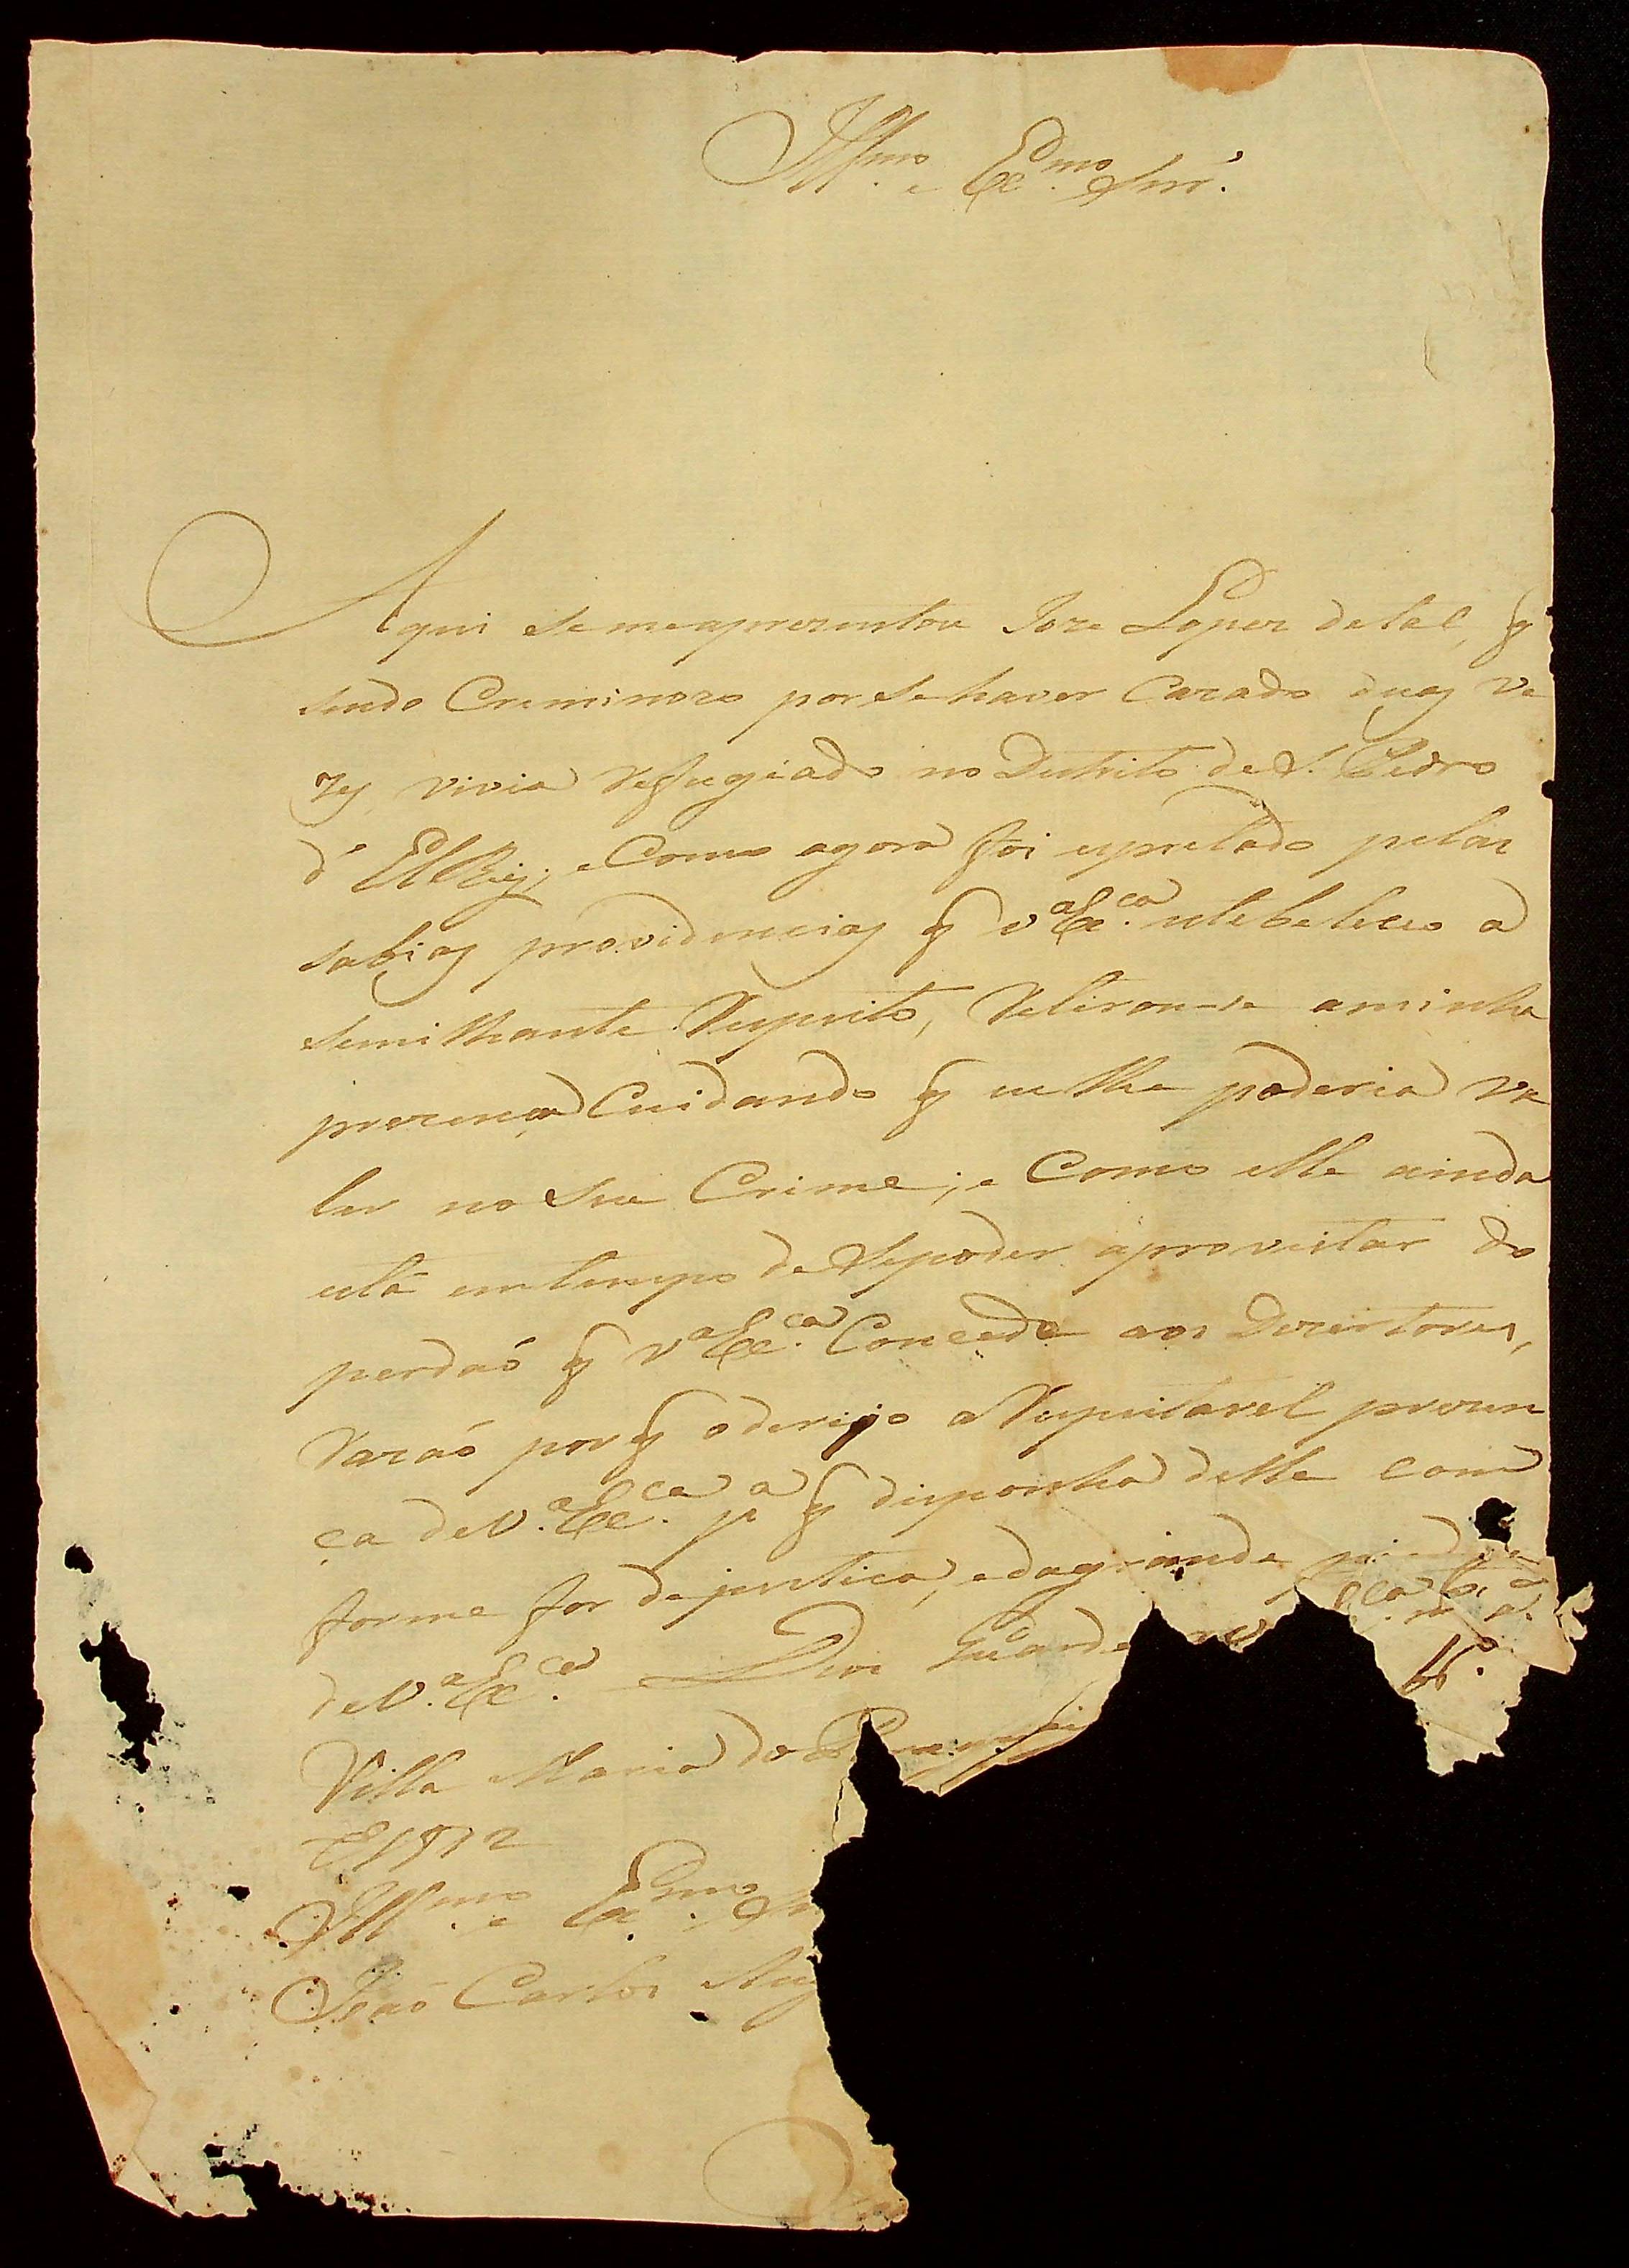 Illmo. e Exmo. Snr.
Aqui se me aprezentou Joze Lopez de tal, q
sendo Creminozo por se haver Cazado duas Ve
zes, vivia Reffugiado no Destrito de S. Pedro
d' El Rey; e Como agora foi apretado pelas
sabias providencias q V.a Ex.ca estabeleceo a
semilhante Respeito, Retirou-se a minha
prezença Cuidando q eu lhe poderia va
ler no seu Crime; e Como elle ainda
está em tempo de Se poder aproveitar do
perdaõ q V.a Ex.ca Concede aos Dezertores,
Razaõ por q o derijo a Respeitavel prezen
ça de V.a Ex.ca p.a q disponha delle con
forme for de justica, e da grande piedade
de V.a Ex.ca Deos Guarde
Villa Maria do
E 1812
Illmo. e Exmo. Sn
Joaõ Carlos Aug